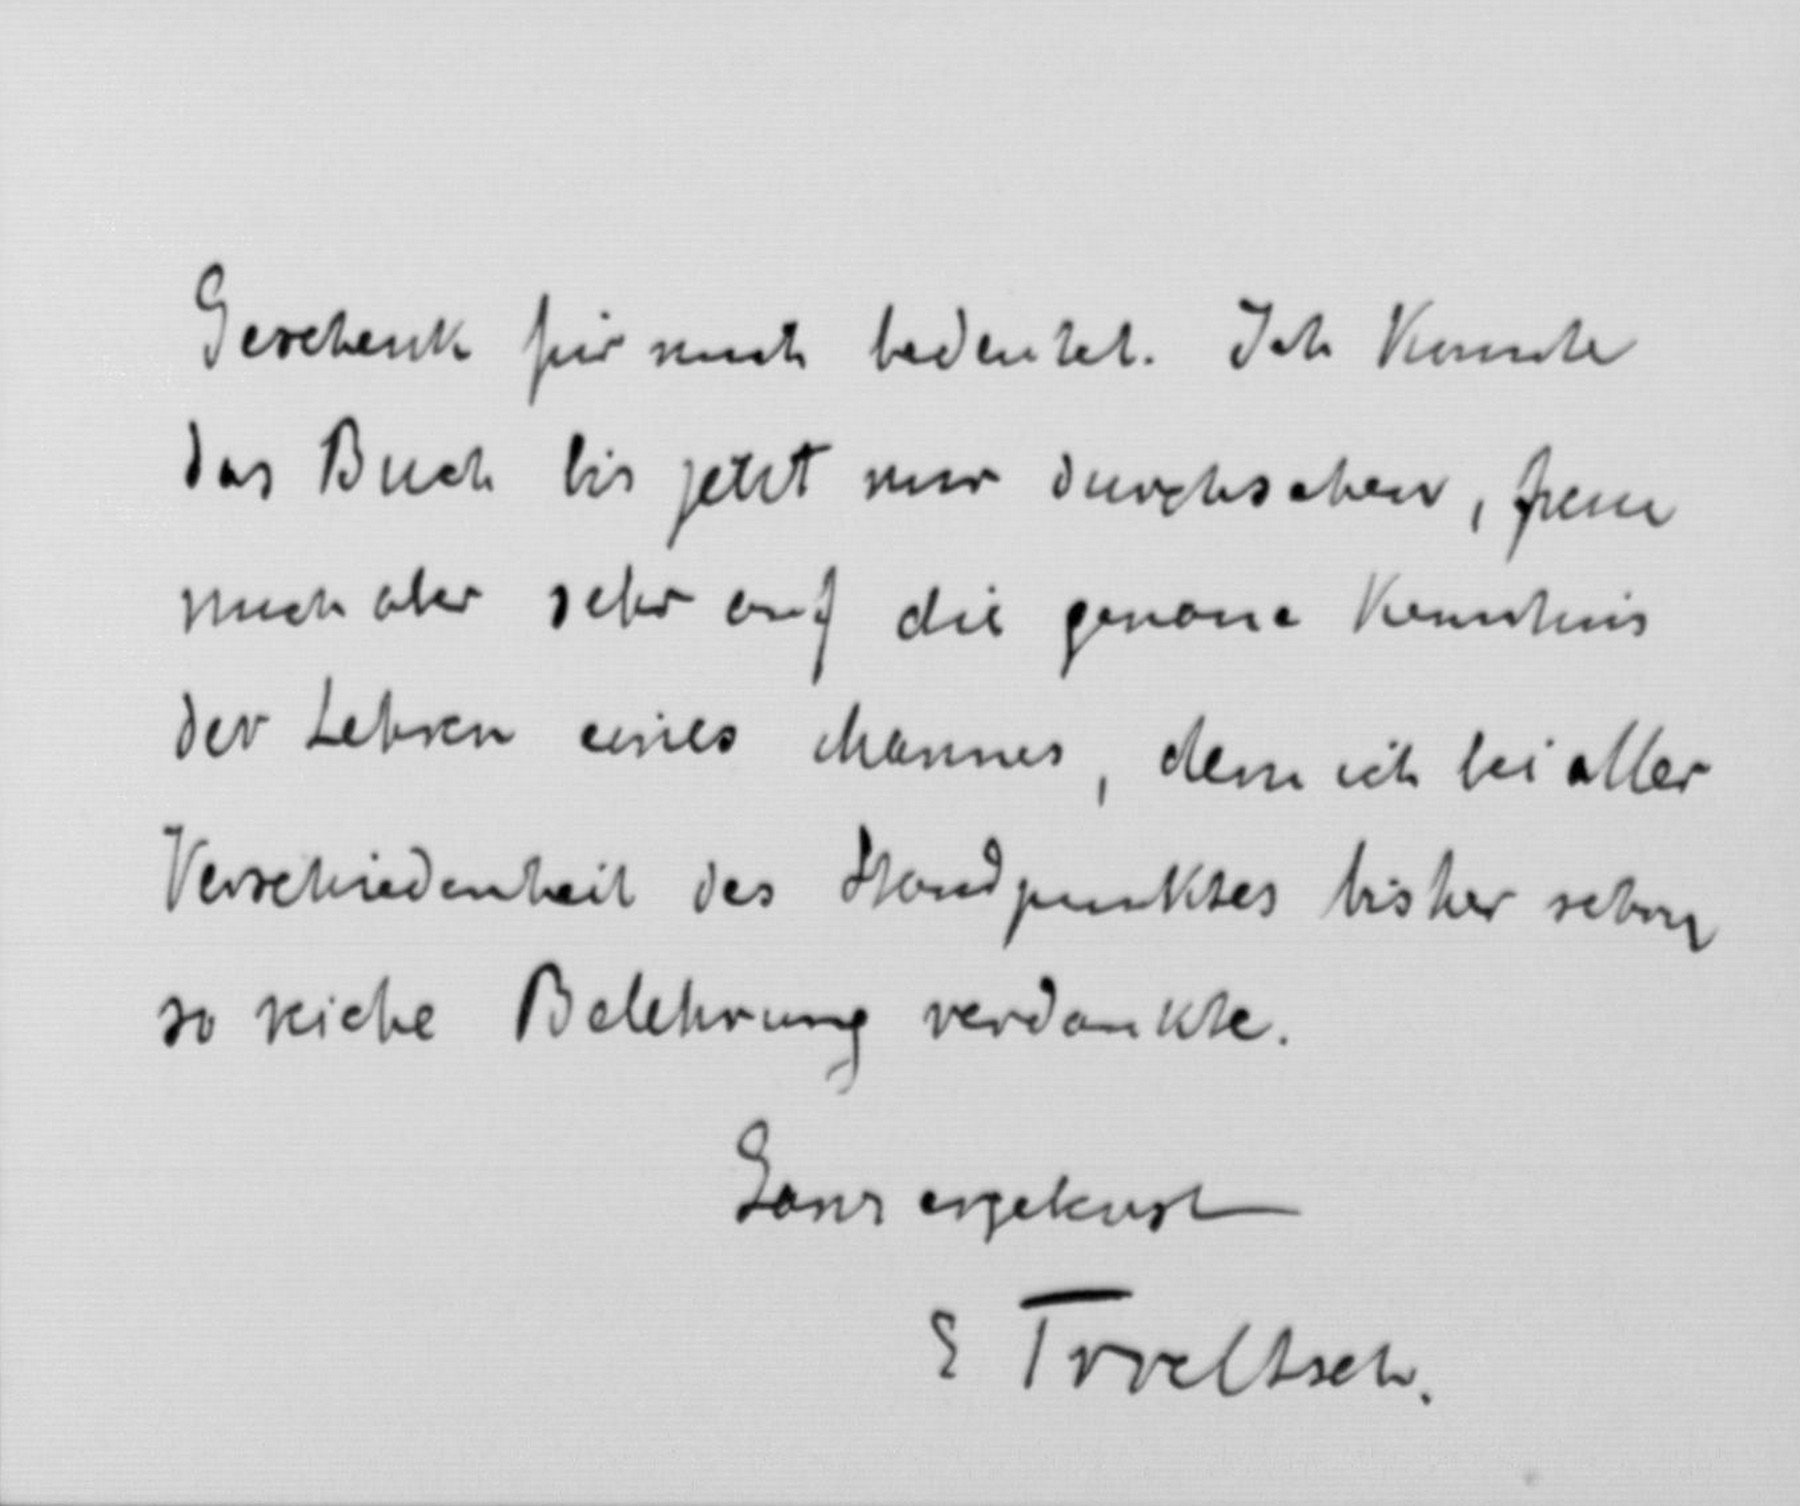 Geschenk für mich bedeutet. Ich konnte
das Buch bis jetzt nur durchsehen, freue
mich aber sehr auf die genaue Kenntnis
der Lehren eines Mannes, dem ich bei aller
Verschiedenheit des Standpunktes bisher schon
so reiche Belehrung verdankte.
Ganz ergebenst
E Troeltsch.